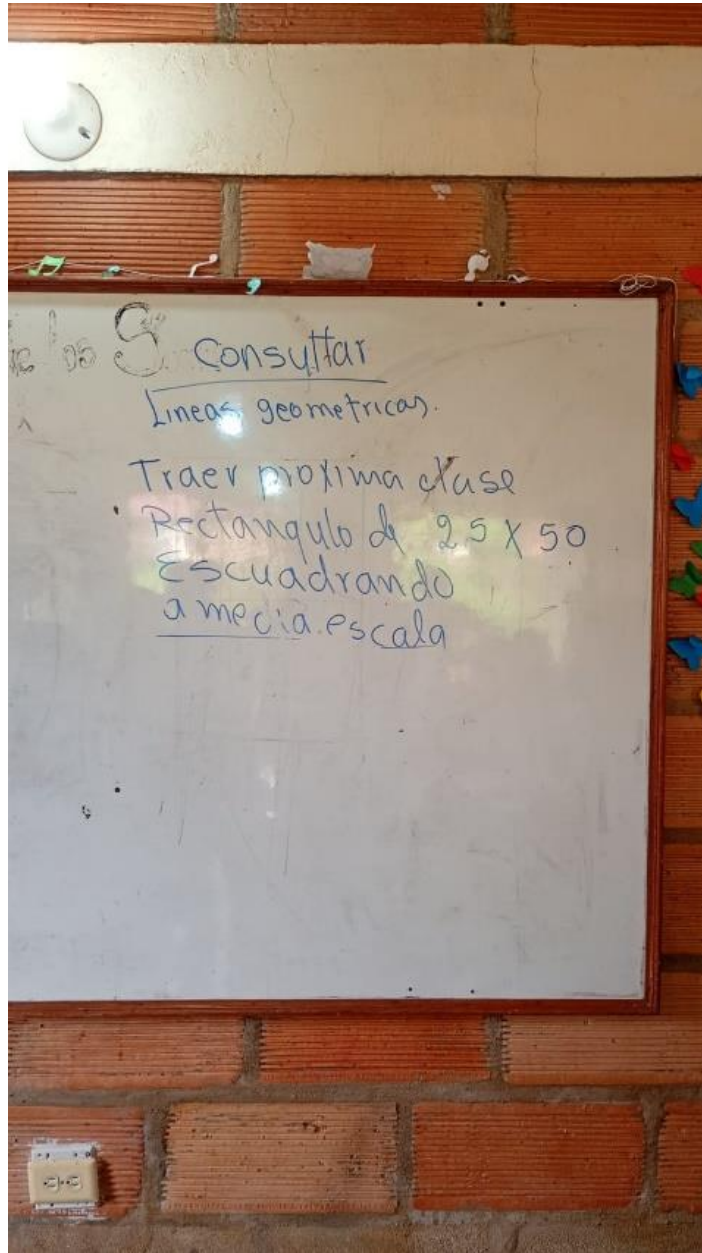 los S
Consultar
Lineas geometricas.
Traer proxima clase
Rectangulo de 25 X 50
Escuadrando
a media escala